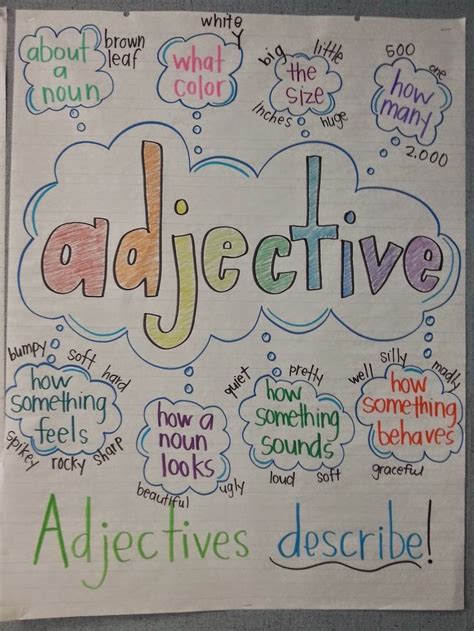 about
a
noun
brown
leaf
white
Y
what
color
big
little
the
size
inches
huge
500
one
how
many
2,000
adjective
bumpy
soft
hard
how
something
feels
spikey
rocky
sharp
how a
noun
looks
beautiful
ugly
quiet
pretty
how
something
sounds
loud
soft
well
silly
madly
how
something
behaves
graceful
Adjectives describe!